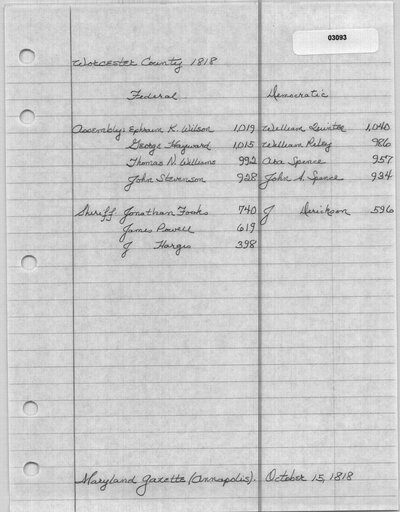 03093
Worcester County 1818
Federal Democratic
Assembly: Ephraim K. Wilson 1,019 William Quinton 1,040
George Hayward 1,015 William Riley 986
Thomas N. Williams 992 Ara Spence 957
John Stevenson 928 John S. Spence 934
Sheriff Jonathan Fooks 740 J Derickson 596
James Powell 619
J Hargis 398
Maryland Gazette (Annapolis). October 15, 1818